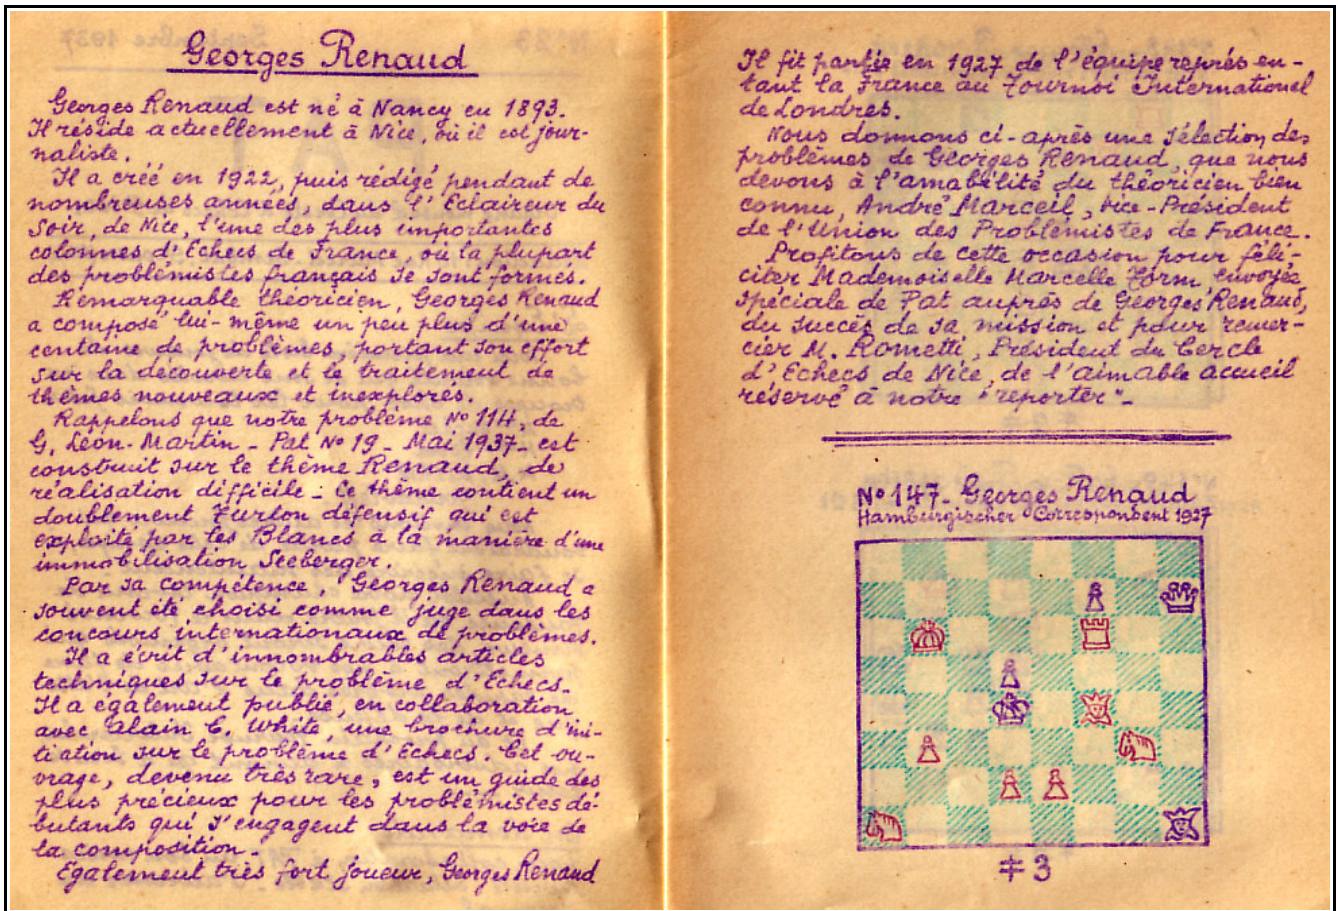 Georges Renaud
Georges Renaud est né à Nancy en 1893.
Il réside actuellement à Nice, où il est jour-
naliste.
Il a créé en 1922, puis rédigé pendant de
nombreuses années, dans l'Eclaireur du
Soir, de Nice, l'une des plus importantes
colonnes d'Echecs de France, où la plupart
des problémistes français se sont formés.
Remarquable théoricien, Georges Renaud
a composé lui-même un peu plus d'une
centaine de problèmes, portant son effort
sur la découverte et le traitement de
thèmes nouveaux et inexplorés.
Rappelons que notre problème No 114, de
G. Léon-Martin - Pat No 19 - Mai 1937 - est
construit sur le thème Renaud, de
réalisation difficile - Ce thème contient un
doublement Turton défensif qui est
exploité par les Blancs à la manière d'une
immobilisation Seeberger.
Par sa compétence, Georges Renaud a
souvent été choisi comme juge dans les
concours internationaux de problèmes.
Il a écrit d'innombrables articles
techniques sur le problème d'Echecs.
Il a également publié, en collaboration
avec Alain C. White, une brochure d'ini-
tiation sur le problème d'Echecs. Cet ou-
vrage, devenu très rare, est un guide des
plus précieux pour les problémistes dé-
butants qui s'engagent dans la voie de
la composition -
Egalement très fort joueur, Georges Renaud
Il fit partie en 1927 de l'équipe représen-
tant la France au Tournoi International
de Londres.
Nous donnons ci-après une sélection des
problèmes de Georges Renaud, que nous
devons à l'amabilité du théoricien bien
connu, André Marceil, Vice-Président
de l'Union des Problémistes de France.
Profitons de cette occasion pour féli-
citer Mademoiselle Marcelle Torm, envoyée
spéciale de Pat auprès de Georges Renaud,
du succès de sa mission et pour remer-
cier M. Rometti, Président du Cercle
d'Echecs de Nice, de l'aimable accueil
réservé à notre "reporter" -
No 147 - Georges Renaud
Hamburgischer Correspondent 1927
‡ 3